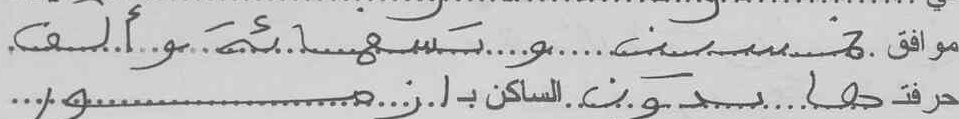 موافق خمسين و تسعمائة و ألف
حرفتها بدون الساكن ب ازمور